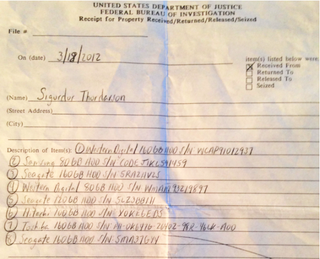 UNITED STATES DEPARTMENT OF JUSTICE
FEDERAL BUREAU OF INVESTIGATION
Receipt for Property Received/Returned/Released/Seized
File #
On (date) 3/18/2012
item(s) listed below were:
Received From
Returned To
Released To
Seized
(Name) Sigurdur Thordarson
(Street Address)
(City)
Description of Item(s): ① Western Digital 160GB HDD S/N
② Samsung 80GB HDD S/N
③ Seagate 160GB HDD S/N
④ Western Digital 80GB HDD S/N
⑤ Seagate 120GB HDD S/N
⑥ Hitachi 160GB HDD S/N
⑦ Toshiba 160GB HDD S/N
⑧ Seagate 160GB HDD S/N